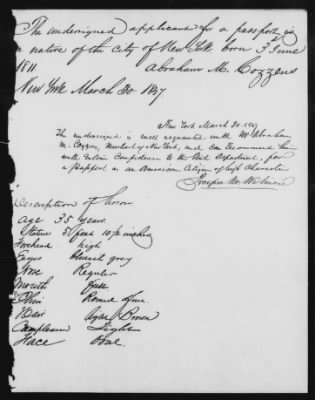 The undersigned applicant for a passport is
a native of the City of New York born 3d June
1811. Abraham M. Cozzens
New York March 30 1847
New York March 30, 1847
The undersigned is well acquainted with Mr Abraham
M. Cozzens, Merchant of New York, and can recommend him
with entire Confidence to the State Department, for
a Passport as an American Citizen of high Character
Prosper M. Wetmore
Description of Person
Age 35 years
Stature 5 feet 10 1/2 inches
Forehead high
Eyes Blueish grey
Nose Regular
Mouth full
Chin Round
Hair light Brown
Complexion Light
Face Oval.